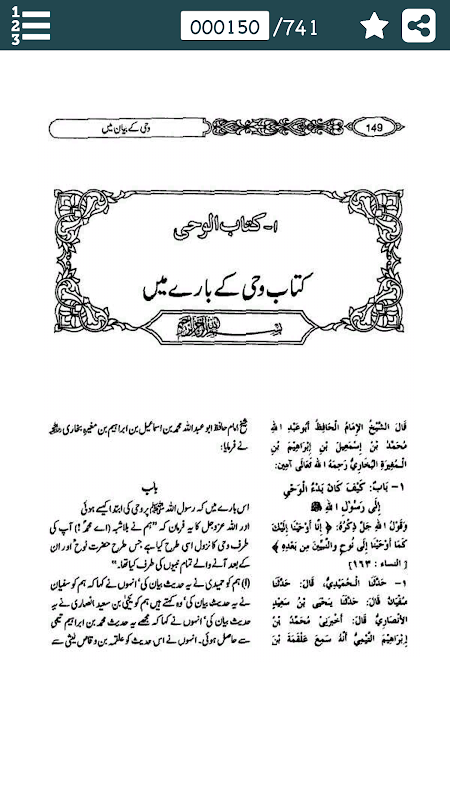 1
2
3
000150 /741
وحی کے بیان میں
149
۱- کتاب الوحی
کتاب وحی کے بارے میں
قَالَ الشَّيْخُ الإِمَامُ الْحَافِظُ أَبُو عَبْدِ اللهِ
مُحَمَّدُ بْنُ إِسْمَعِيْلَ بْنِ إِبْرَاهِيْمَ بْنِ
الْمُغِيْرَةِ الْبُخَارِيُّ رَحِمَهُ اللهُ تَعَالَى آمين:
١- بَابٌ: كَيْفَ كَانَ بَدْءُ الْوَحْيِ
إِلَى رَسُوْلِ اللهِ ﷺ
وَقَوْلُ اللهِ جَلَّ ذِكْرُهُ: ﴿ إِنَّا أَوْحَيْنَا إِلَيْكَ
كَمَا أَوْحَيْنَا إِلَى نُوحٍ وَالنَّبِيِّيْنَ مِن بَعْدِهِ ﴾
[النساء : ١٦٣]
١- حَدَّثَنَا الْحُمَيْدِيُّ، قَالَ: حَدَّثَنَا
سُفْيَانُ قَالَ: حَدَّثَنَا يَحْيَى بْنُ سَعِيْدٍ
الأَنْصَارِيُّ قَالَ: أَخْبَرَنِيْ مُحَمَّدُ بْنُ
إِبْرَاهِيْمَ التَّيْمِيُّ أَنَّهُ سَمِعَ عَلْقَمَةَ بْنَ
شیخ امام حافظ ابو عبداللہ محمد بن اسماعیل بن ابراہیم بن مغیرہ بخاری
نے فرمایا:
باب
اس بارے میں کہ رسول اللہ ﷺ پر وحی کی ابتدا کیسے ہوئی
اور اللہ عزوجل کا یہ فرمان کہ "ہم نے بلاشبہ (اے محمد!) آپ کی
طرف وحی کا نزول اسی طرح کیا ہے جس طرح حضرت نوح اور ان
کے بعد آنے والے تمام نبیوں کی طرف کیا تھا۔"
(۱) ہم کو حمیدی نے یہ حدیث بیان کی' انہوں نے کہا کہ ہم کو سفیان
نے یہ حدیث بیان کی' وہ کہتے ہیں ہم کو یحیٰ بن سعید انصاری نے یہ
حدیث بیان کی' انہوں نے کہا کہ مجھے یہ حدیث محمد بن ابراہیم تیمی
سے حاصل ہوئی۔ انہوں نے اس حدیث کو علقمہ بن وقاص لیثی سے